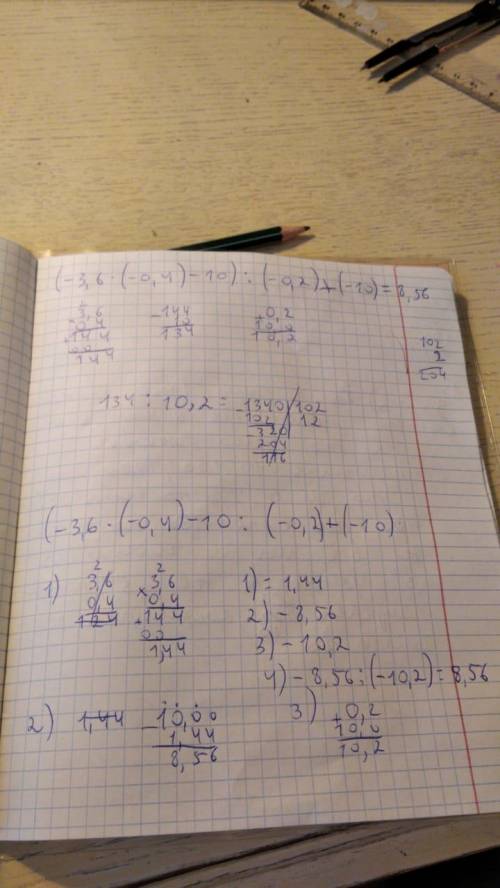 (-3,6 · (-0,4) - 10) : (-0,2) + (-10) = 8,56
3,6
0,4
144
00
144
- 144
10
134
+ 0,2
10,0
10,2
102
2
204
134 : 10,2 =
- 1340 | 102
102 12
- 320
204
116
(-3,6 · (-0,4) - 10 : (-0,2) + (-10)
1)
2
3,6
0,4
124
2
× 3,6
0,4
+ 144
00
1,44
1) = 1,44
2) - 8,56
3) - 10,2
4) - 8,56 : (-10,2) = 8,56
2) 1,44
- 10,00
1,44
8,56
3)
+ 0,2
10,0
10,2